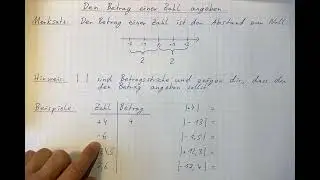 Den Betrag einer Zahl angeben
Merksatz: Der Betrag einer Zahl ist der Abstand zur Null
-2 -1 0 +1 +2
2 2
Hinweis: | | sind Betragsstriche und zeigen dir, dass du
den Betrag angeben sollst
Beispiele: Zahl Betrag |+4| =
+4 4 |-13| =
-6 |-1,5| =
|+12,3| =
|-17,4| =